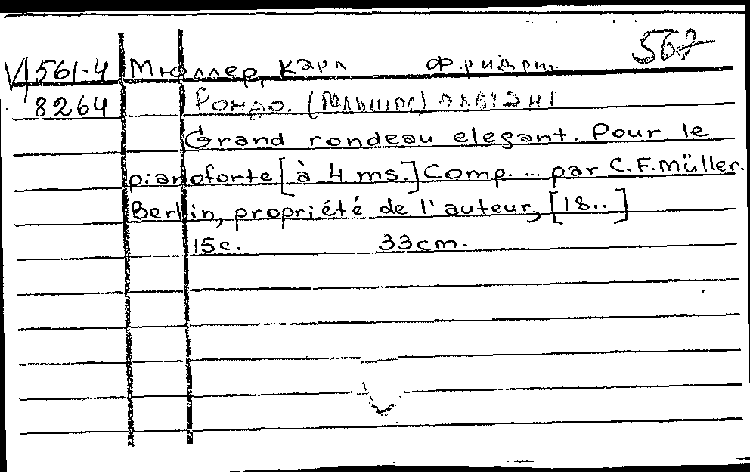 567
VI 561-4 Мюллер, Карл Фридрих
8264 Рондо. (большое)
Grand rondeau elegant. Pour le
pianoforte [à 4 ms.] Comp... par C.F.Müller.
Berlin, propriété de l'auteur, [18..]
15c. 33cm.